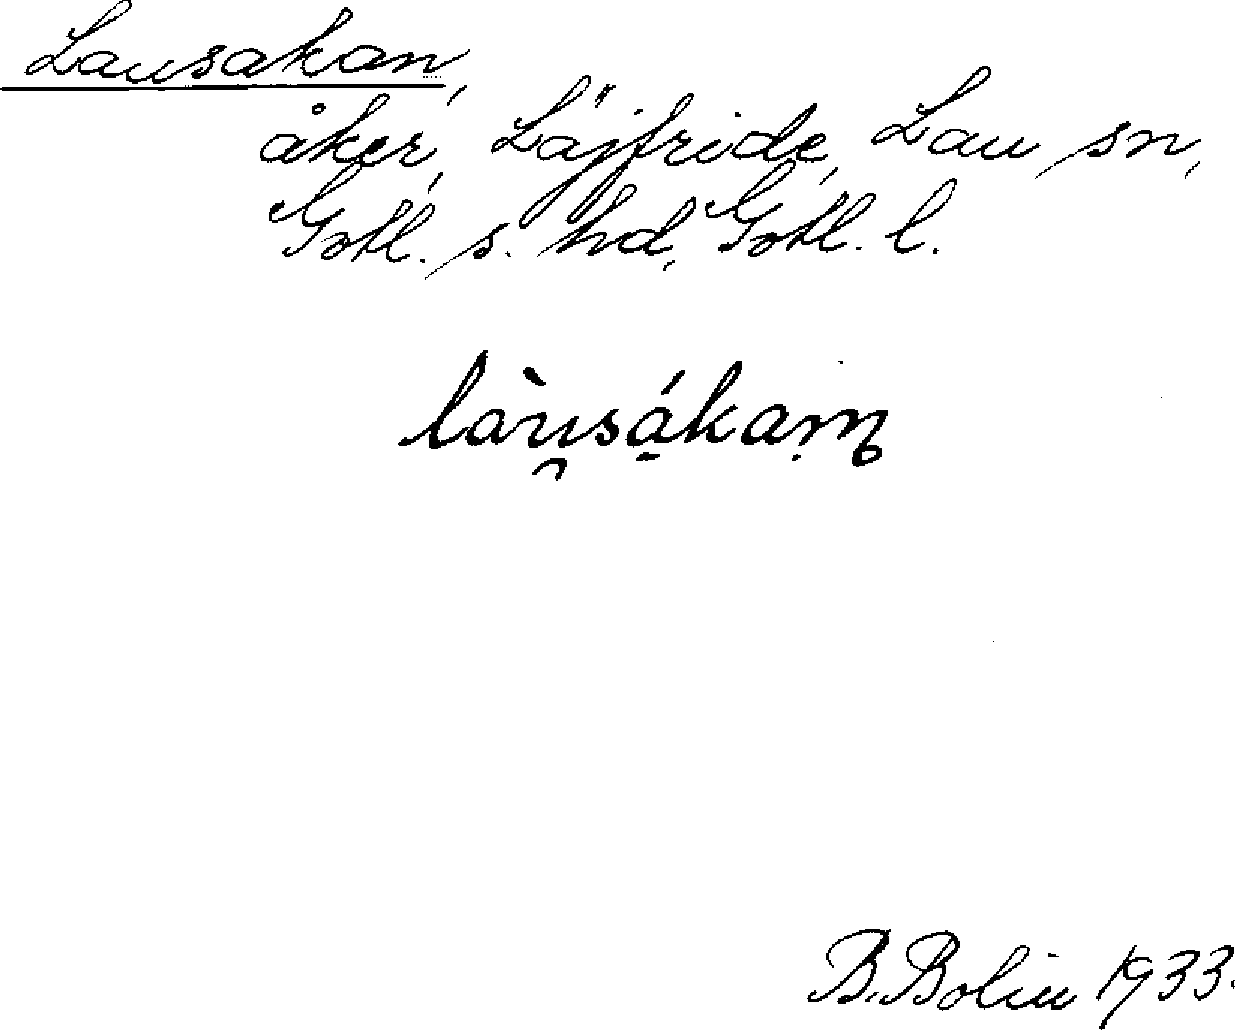 Lausakan,
åker, Läjfride, Lau sn,
Gotl. s. hd, Gotl. l.
B. Bolin 1933.